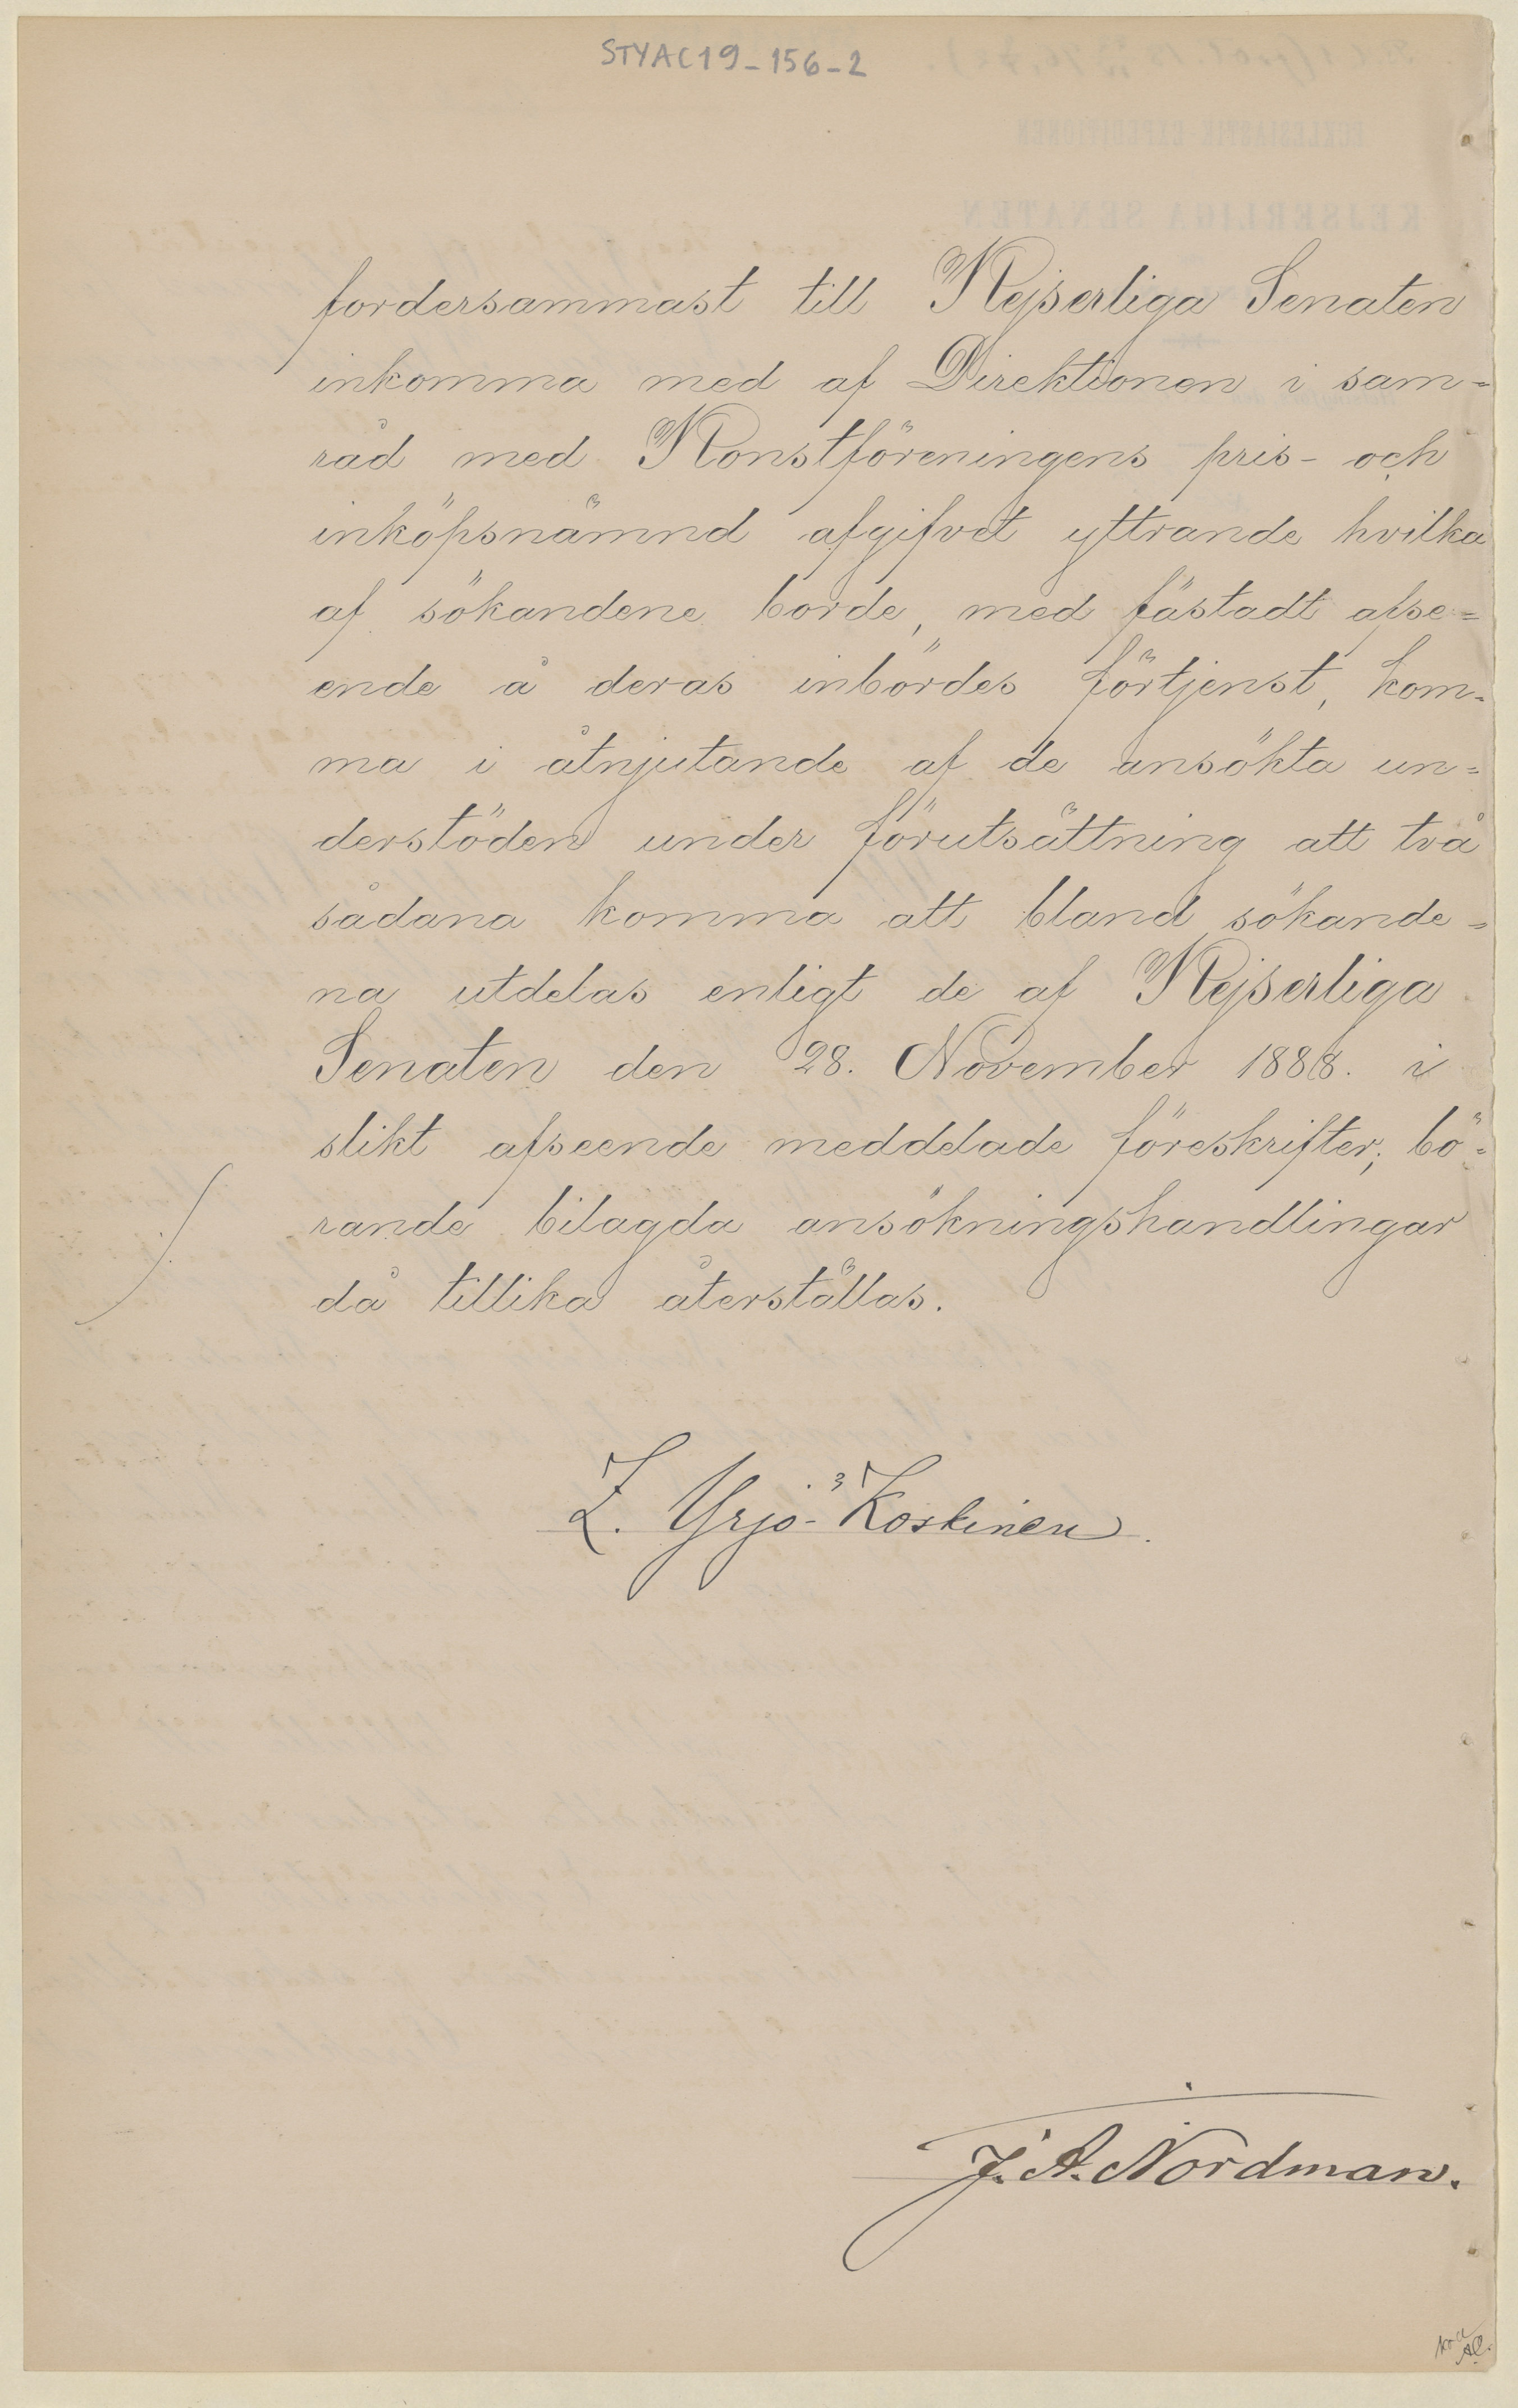 STYAC19-156-2
fordersammast till Kejserliga Senaten
inkomma med af Direktionen i sam=
råd med Konstföreningens pris- och
inköpsnämnd afgifvet yttrande hvilka
af sökandene borde, med fästadt afse=
ende å deras inbördes förtjenst, kom=
ma i åtnjutande af de ansökta un=
derstöden under förutsättning att två
sådana komma att bland sökande=
na utdelas enligt de af Kejserliga
Senaten den 28. November 1888. i
slikt afseende meddelade föreskrifter; bö=
rande bilagda ansökningshandlingar
då tillika återställas.
Z. Yrjö-Koskinen.
J. A. Nordman.